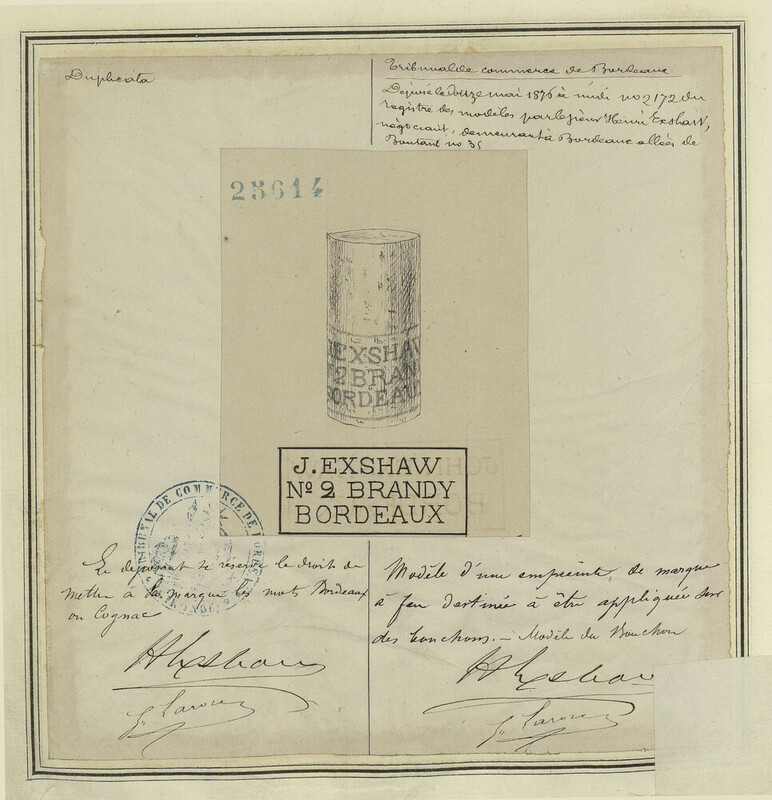 Duplicata
Tribunal de commerce de Bordeaux
Déposé le douze mai 1876 à midi no 2172 du
registre des modèles par le sieur Henri Exshaw,
négociant, demeurant à Bordeaux allées de
Boutaut no 35
25614
J.EXSHAW
No 2 BRAN
BORDEAU
J. EXSHAW
No 2 BRANDY
BORDEAUX
TRIBUNAL DE COMMERCE DE BORDEAUX
Le déposant se réserve le droit de
mettre à la marque les mots Bordeaux
ou Cognac
HExshaw
Modèle d'une empreinte de marque
à feu destinée à être appliquée sur
des bouchons. – Modèle du Bouchon
HExshaw